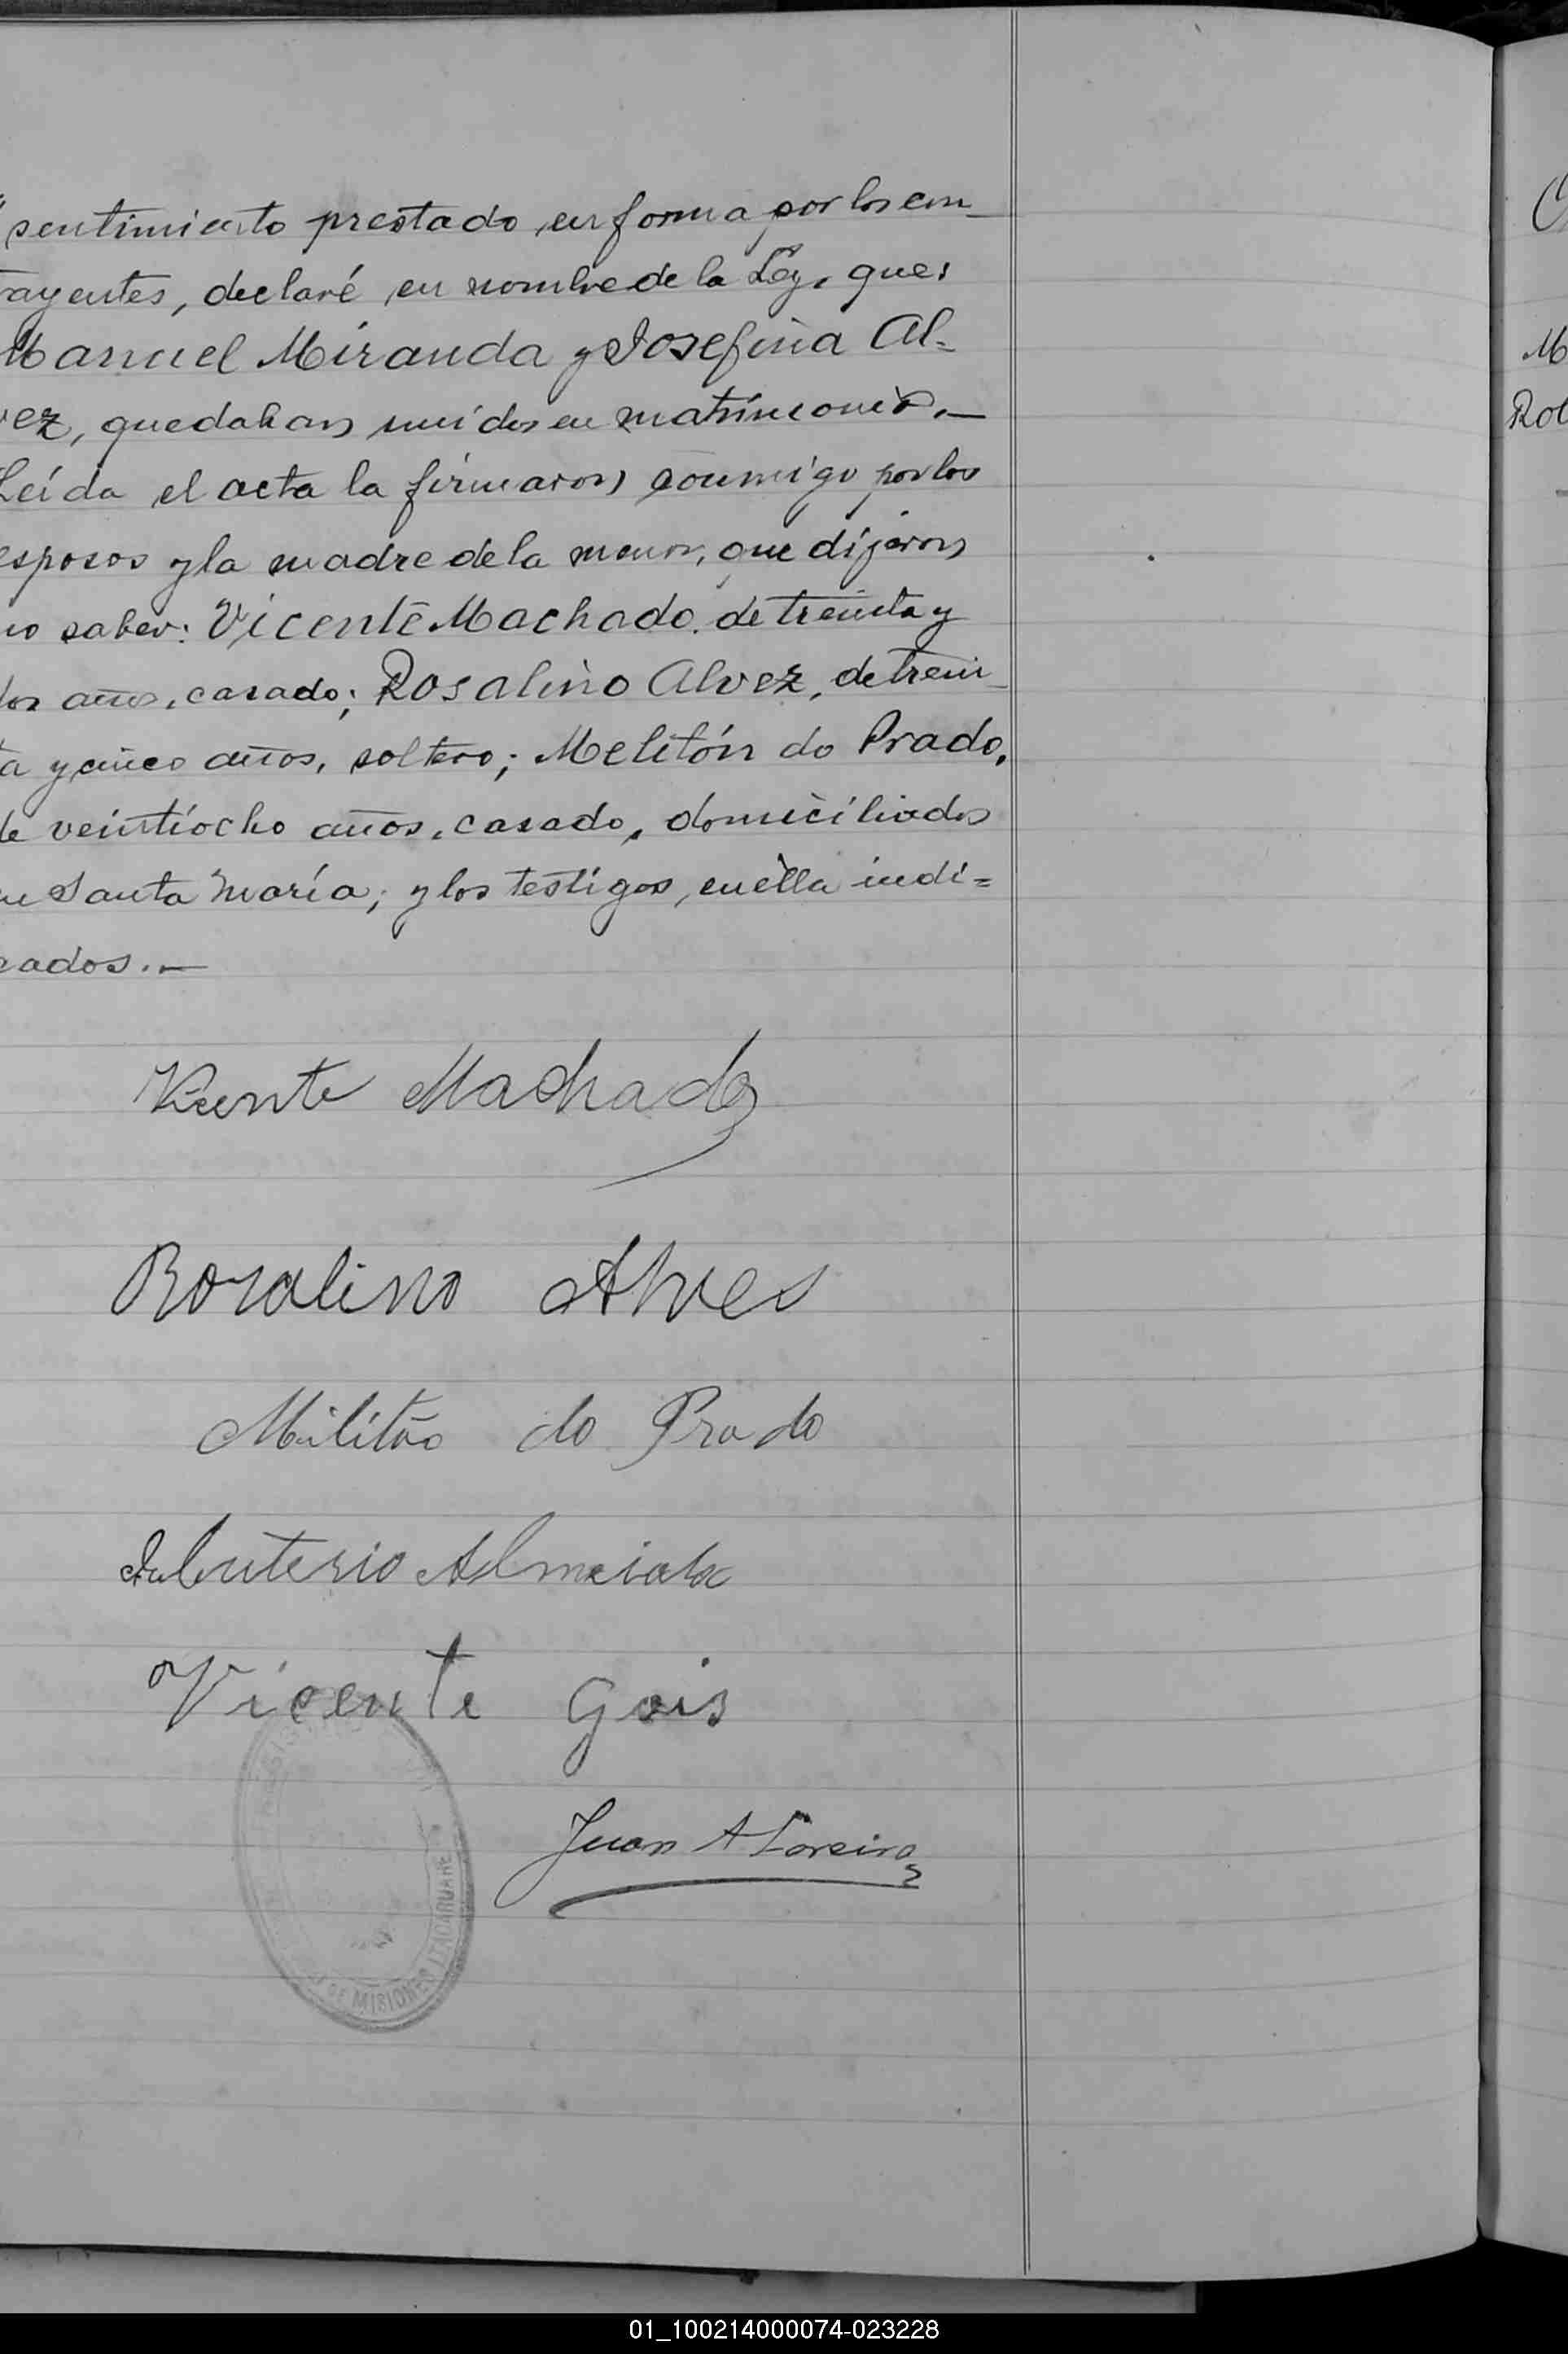 sentimiento prestado en forma por los con-
rayentes, declaré en nombre de la Ley, que:
Manuel Miranda y Josefina Al-
vez, quedaban unidos en matrimonio.—
Leída el acta la firmaron conmigo por los
esposos y la madre de la menor, que dijeron
no saber: Vicente Machado, de treinta y
dos años, casado; Rosalino Alvez, de trein-
ta y cinco años, soltero; Melitón do Prado,
de veintiocho años, casado, domiciliados
en Santa María; y los testigos, en ella indi=
cados.—
Vicente Machado
Rosalino Alves
Militão do Prado
Almeida
Vicente Gois
Juan A
DE MISIONES ITACARUARE
C
M
Rol
01_100214000074-023228